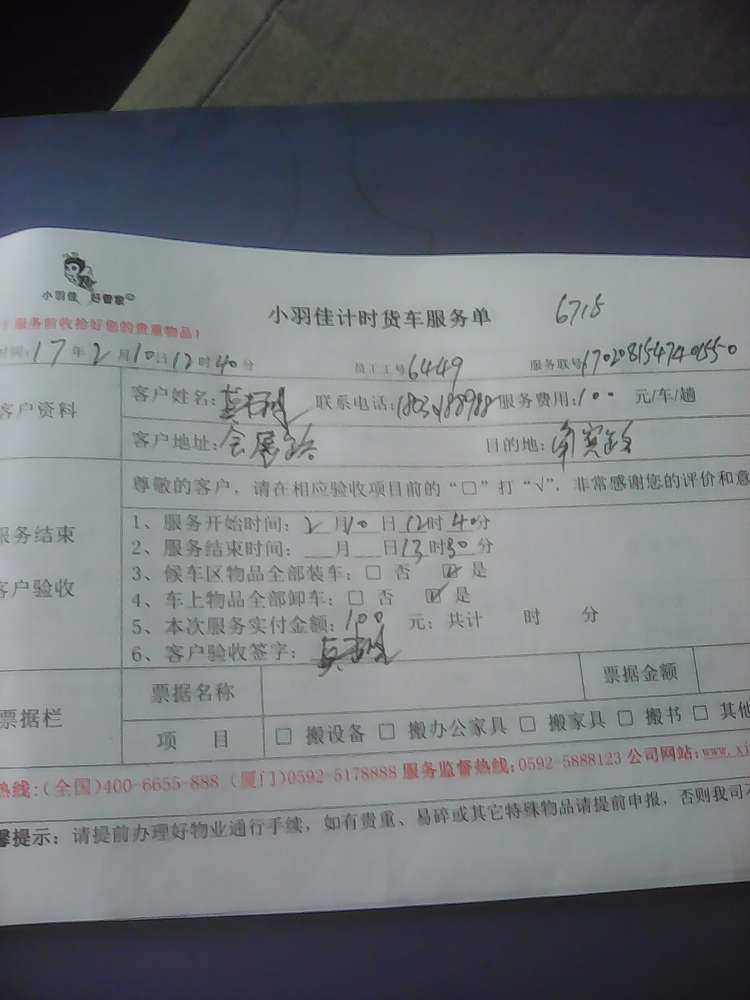 小羽佳 好管家
小羽佳计时货车服务单 6715
服务前收拾好您的贵重物品!
时间:17年2月10日12时40分 员工工号6449 服务取号
客户资料
客户姓名: 联系电话: 服务费用:100 元/车/趟
客户地址:会展路 目的地:
服务结束
客户验收
尊敬的客户,请在相应验收项目前的“□”打“√”.非常感谢您的评价和意
1、服务开始时间:2月10日12时40分
2、服务结束时间:__月__日13时30分
3、候车区物品全部装车:□ 否 ☑ 是
4、车上物品全部卸车:□ 否 ☑ 是
5、本次服务实付金额:100 元;共计 时 分
6、客户验收签字:
票据栏
票据名称 票据金额
项 目 □ 搬设备 □ 搬办公家具 □ 搬家具 □ 搬书 □ 其他
热线:(全国)400-6655-888 (厦门)0592-5178888 服务监督热线:0592-5888123 公司网站:www.xi
馨提示:请提前办理好物业通行手续,如有贵重、易碎或其它特殊物品请提前申报,否则我司不